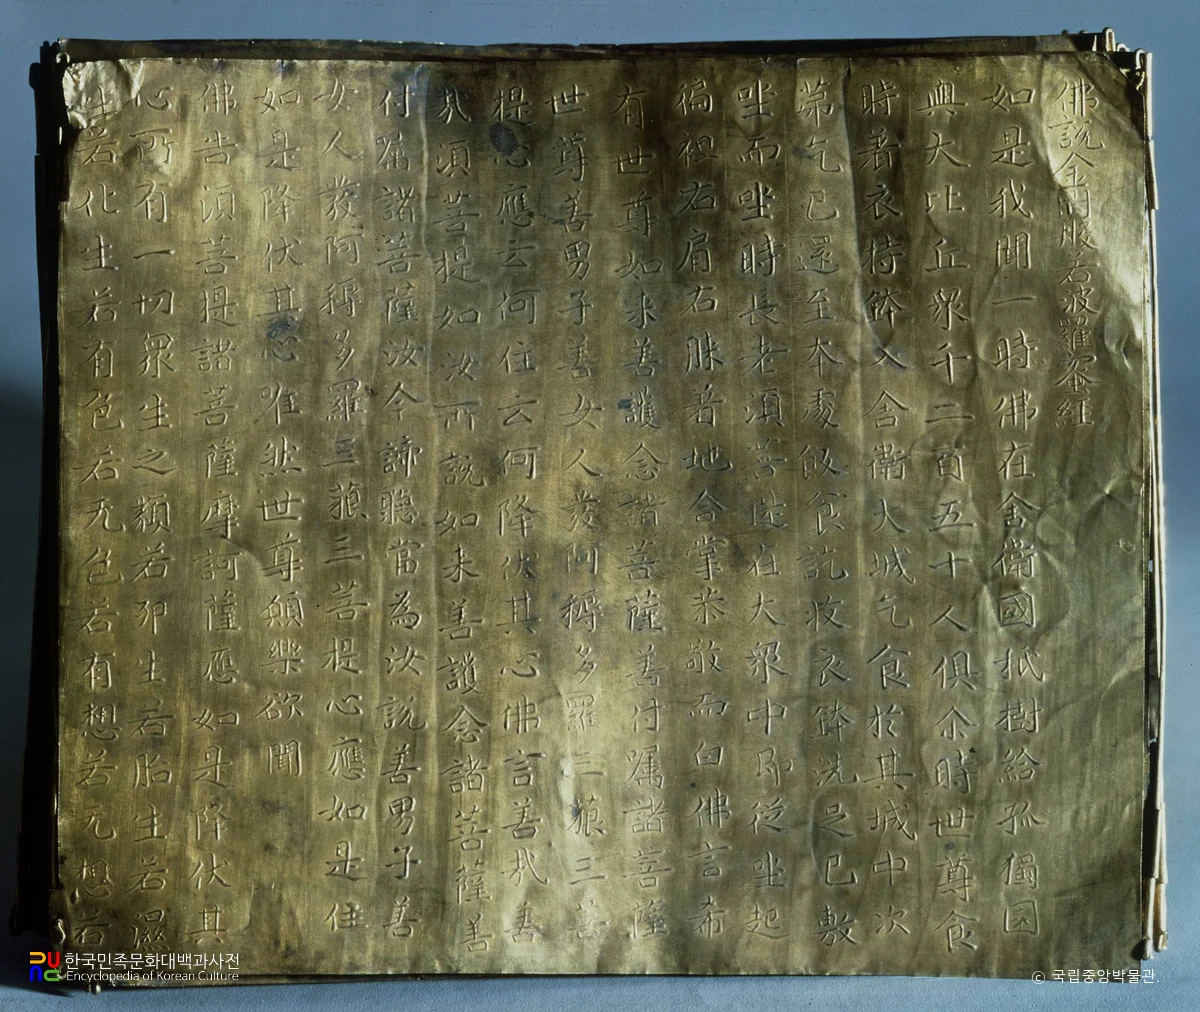 佛說金剛般若波羅蜜經
如是我聞一時佛在舍衛國祇樹給孤獨園
與大比丘眾千二百五十人俱尒時世尊食
時著衣持鉢入舍衛大城乞食於其城中次
第乞已還至本處飯食訖收衣鉢洗足已敷
坐而坐時長老須菩提在大眾中即從坐起
徧袒右肩右膝著地合掌恭敬而白佛言希
有世尊如来善護念諸菩薩善付嘱諸菩薩
世尊善男子善女人發阿耨多羅三藐三菩
提心應云何住云何降伏其心佛言善哉善
哉須菩提如汝所說如来善護念諸菩薩善
付嘱諸菩薩汝今諦聽當為汝說善男子善
女人發阿耨多羅三藐三菩提心應如是住
如是降伏其心唯然世尊願樂欲聞
佛告須菩提諸菩薩摩訶薩應如是降伏其
心所有一切眾生之類若卵生若胎生若濕
生若化生若有色若无色若有想若无想若
한국민족문화대백과사전
Encyclopedia of Korean Culture
© 국립중앙박물관.